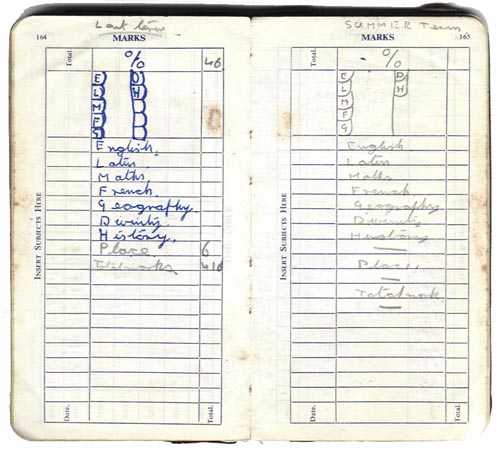 Last term
164 MARKS
Total.
%
46
E D
L H
M
F
G
English.
Latin
Maths
French.
Geography
Divinity.
History.
Place 6
Total marks 416
INSERT SUBJECTS HERE
Date.
Total.
SUMMER Term
MARKS 165
Total.
%
E D
L H
M
F
G
English
Latin
Maths
French
Geography
Divinity
Place.
INSERT SUBJECTS HERE
Date.
Total.